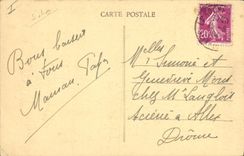 CARTE POSTALE
Bons baisers
à tous
Maman Papa
Melles
Simone et
Geneviève
chez M. Langlois
Scierie à Allex
Drôme
20